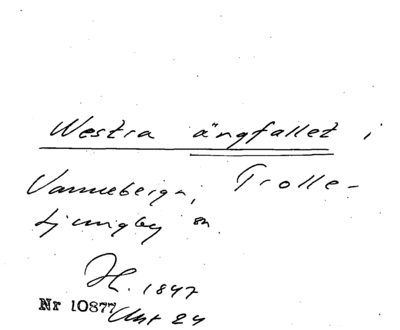 Westra ängfallet i
Vanneberga, Trolle-
Ljungby sn.
H. 1847
Nr 10877 Akt 24